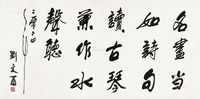 名画当
如诗句
读古琴
兼作水
声听
二〇〇四
刘文西